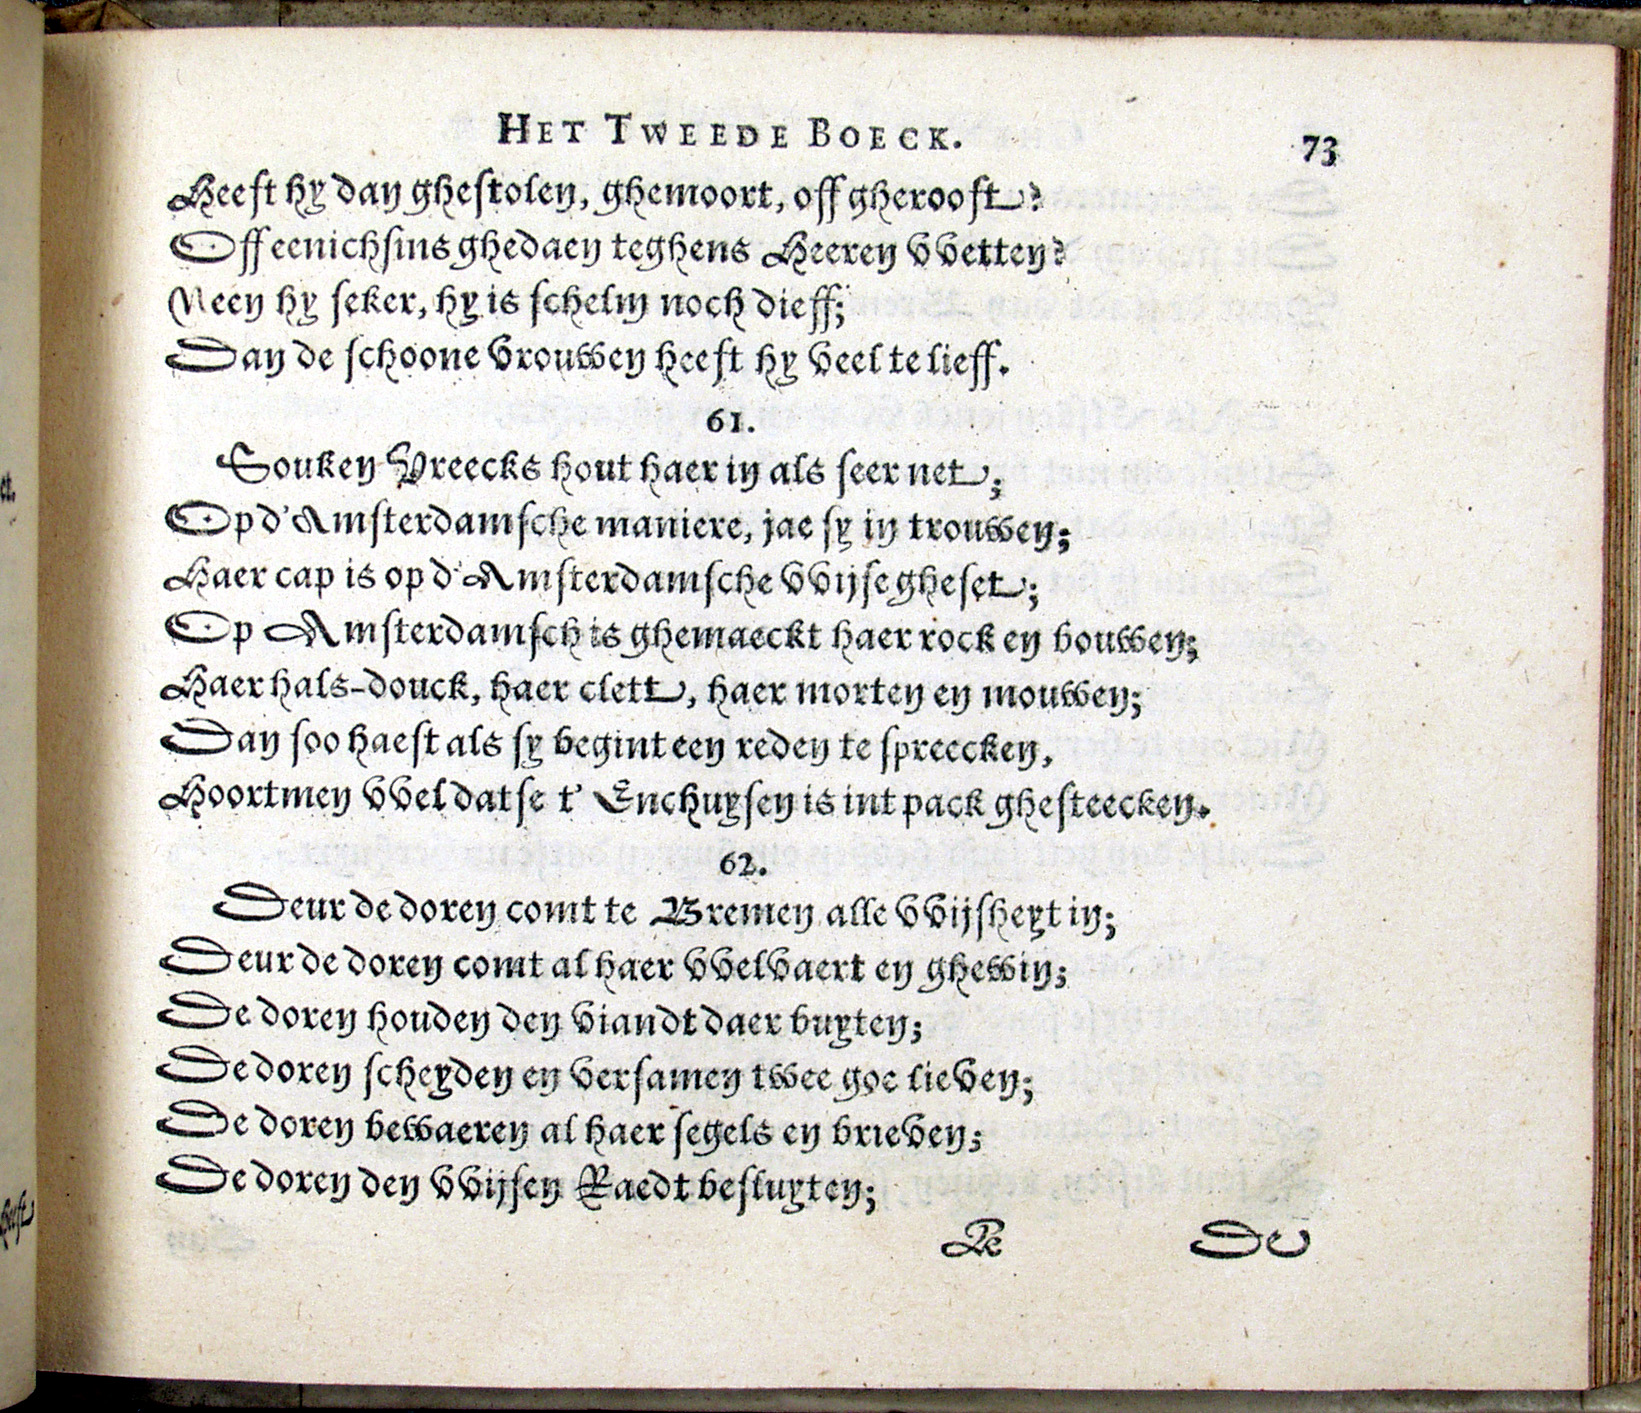 HET TWEEDE BOECK.
73
Heeft hy dan ghestolen, ghemoort, off gherooft?
Off eenichsins ghedaen teghens Heeren VVetten?
Neen hy seker, hy is schelm noch dieff;
Dan de schoone vrouwen heeft hy veel te lieff.
61.
Souken Vreecks hout haer in als seer net;
Op d'Amsterdamsche maniere, jae sy in trouwen;
Haer cap is op d'Amsterdamsche VVijse gheset;
Op Amsterdamsch is ghemaeckt haer rock en bouwen;
Haer hals-douck, haer clett, haer morten en mouwen;
Dan soo haest als sy begint een reden te spreecken,
Hoortmen VVel datse t' Enchuysen is int pack ghesteecken.
62.
Deur de doren comt te Bremen alle VVijsheyt in;
Deur de doren comt al haer VVelvaert en ghewin;
De doren houden den viandt daer buyten;
De doren scheyden en versamen twee goe lieven;
De doren bewaeren al haer segels en brieven;
De doren den VVijsen Raedt besluyten;
De